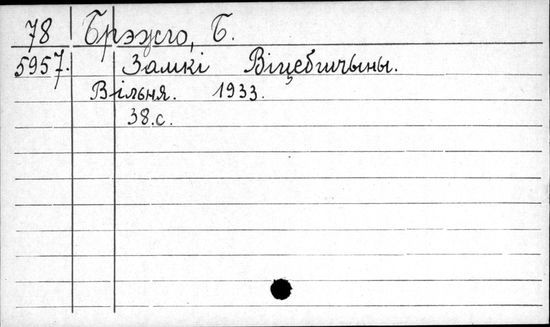 78 Брэжго, Б.
5957. Замкі Віцебшчыны.
Вільня. 1933.
38.с.